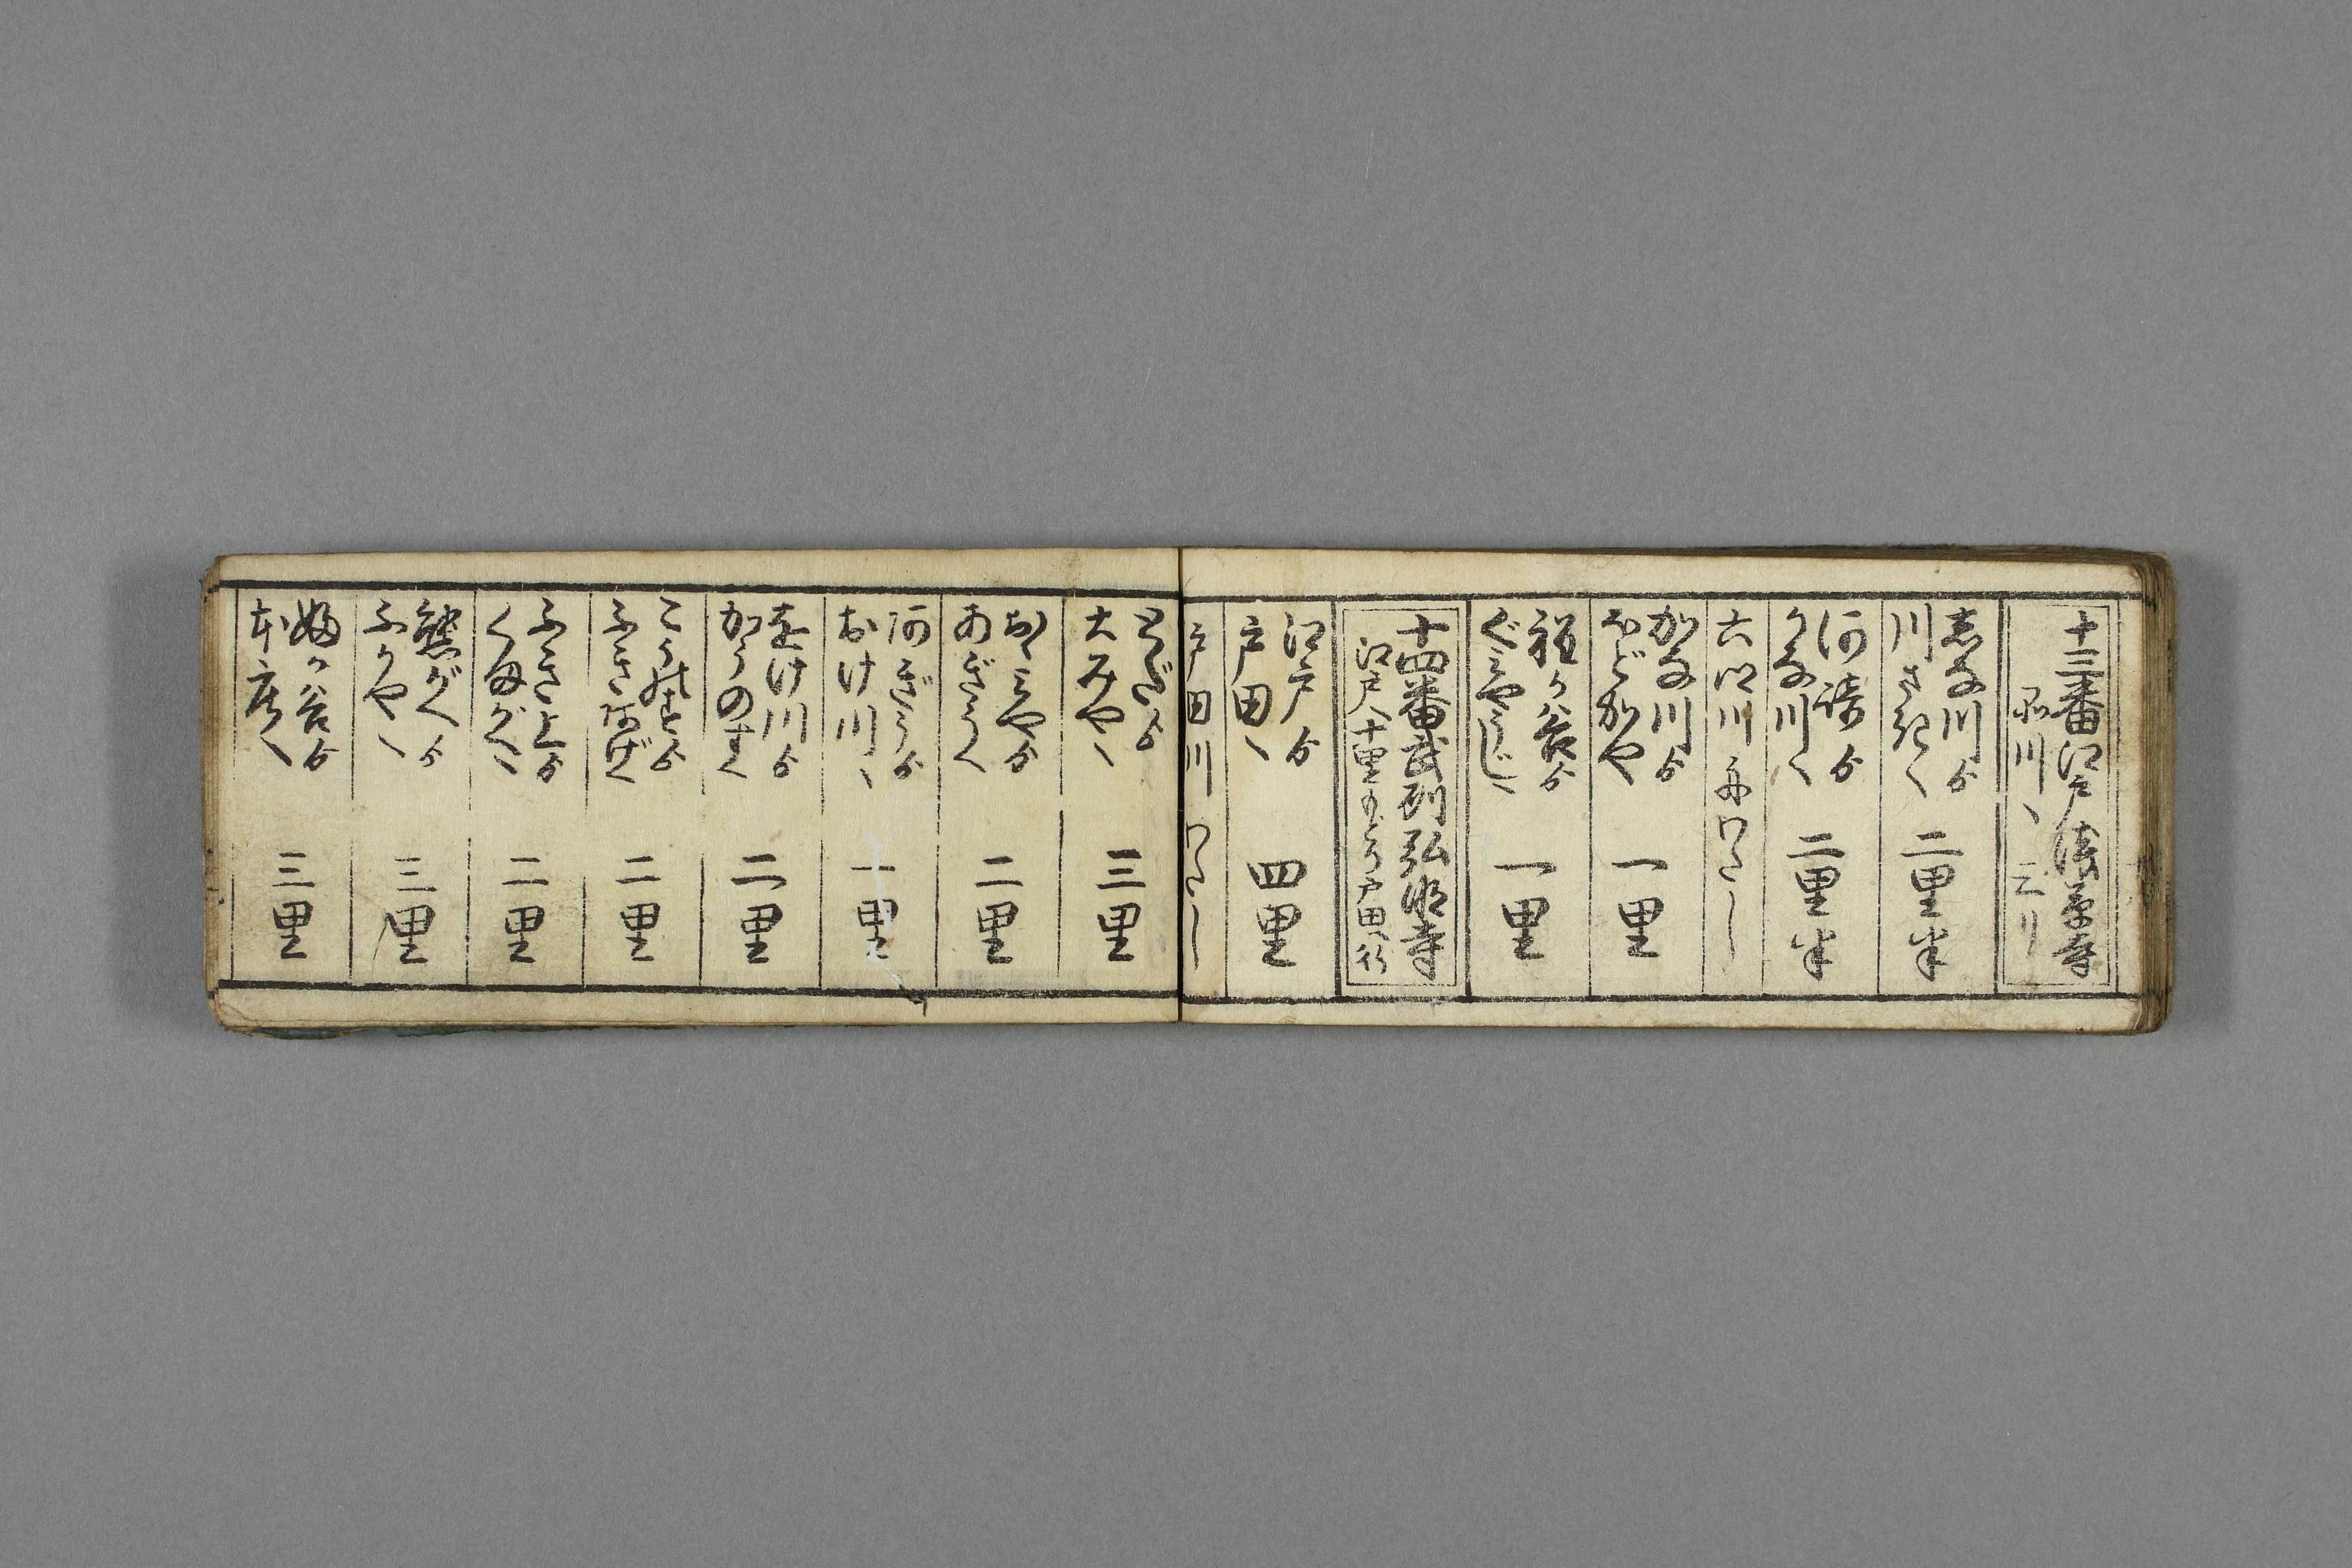 十三番江戸浅草寺
品川へ 二リ
志な川ゟ
川さきへ
二里半
河崎ゟ
かな川へ
二里半
六郷川舟わたし
かな川ゟ
ほどがや
一里
程ヶ谷ゟ
ぐミやうじへ
一里
十四番武州弘明寺
江戸へ十里もどり戸田へ行
江戸ゟ
戸田へ
四里
戸田川わたし
とだゟ
大みやへ
三里
おゝミやゟ
あぎをへ
二里
あぎをゟ
おけ川へ
一里
おけ川ゟ
かうのすへ
二里
こうのすゟ
ふきあげへ
二里
ふき上ゟ
くまがへ
二里
熊がへゟ
ふかやへ
三里
ヶ谷ゟ
本庄へ
三里